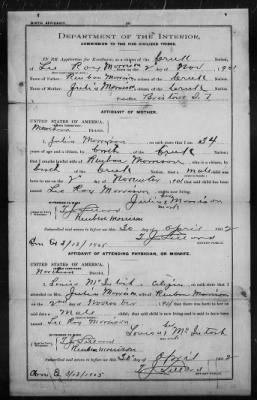 BIRTH AFFIDAVIT.
DEPARTMENT OF THE INTERIOR,
COMMISSION TO THE FIVE CIVILIZED TRIBES.
IN RE Application for Enrollment, as a citizen of the Creek Nation,
Lee Roy Morrison 2 Nov 1901
Name of Father: Reuben Morrison a citizen of the Creek Nation.
Name of Mother: Julia Morrison a citizen of the Creek Nation.
I. T.
AFFIDAVIT OF MOTHER.
UNITED STATES OF AMERICA,
INDIAN TERRITORY,
District.
I, Julia Morrison, on oath state that I am 34
years of age and a citizen by birth of the Creek Nation;
that I am the lawful wife of Reuben Morrison, who is a citizen, by
birth of the Creek Nation, that a male child was
born to me on the 2 day of November, 1901, that said child has been
named Lee Roy Morrison, and is now living.
Julia Morrison
her
mark
Reuben Morrison
Subscribed and sworn to before me this 30 day of April 1902
NOTARY PUBLIC.
AFFIDAVIT OF ATTENDING PHYSICIAN, OR MIDWIFE.
UNITED STATES OF AMERICA,
INDIAN TERRITORY,
Northern District.
I, Louisa McIntosh, a citizen, on oath state that I
attended on Mrs. Julia Morrison, wife of Reuben Morrison
on the 2 day of November, 1901, that there was born to her on
said date a Male child; that said child is now living and is said to have been
named Lee Roy Morrison
Louisa McIntosh
her
mark
Reuben Morrison
Subscribed and sworn to before me this 30 day of April 1902
NOTARY PUBLIC.